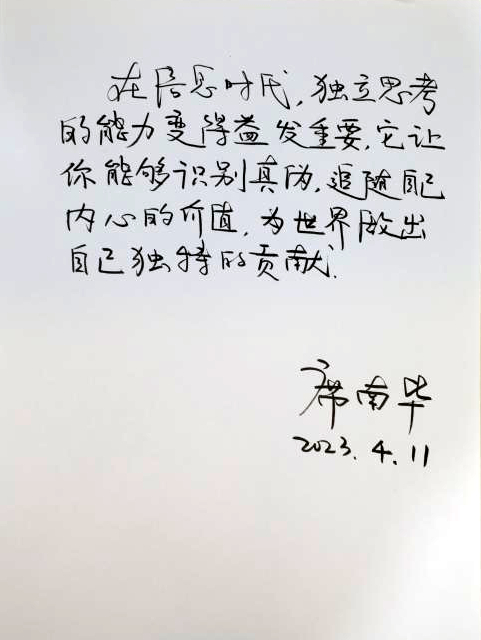 在信息时代，独立思考
的能力变得益发重要，它让
你能够识别真伪，追随自己
内心的价值，为世界做出
自己独特的贡献．
席南华
2023.4.11